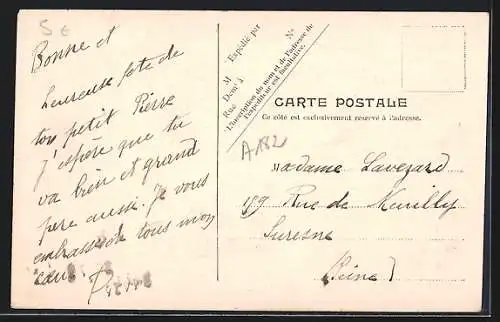 5€
Bonne et
heureuse fête de
ton petit Pierre
j'espère que tu
va bien et grand
père aussi. Je vous
embrasse tous mon
Expédié par
M
N°
Dem<sup>t</sup> à
Rue
L'inscription du nom et de l'adresse de
l'Expéditeur est facultative.
CARTE POSTALE
Ce côté est exclusivement réservé à l'adresse.
A182
Madame Lavezard
159 Rue de Neuilly
Suresne
(Seine)